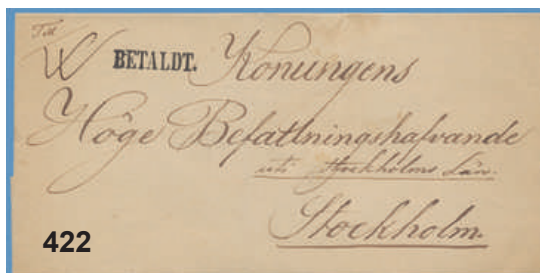 Till
W BETALDT. Konungens
Höge Befattningshafvande
uti Stockholms Län.
Stockholm.
422